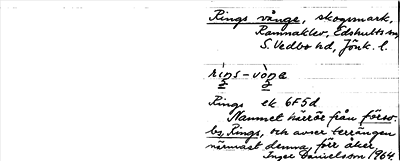 Rings vånge, skogsmark,
Ramnaklev, Edshults sn,
S. Vedbo hd, Jönk. l.
rìŋs-vòŋa
Rings ek 6F5d
Namnet härrör från förs.
by, Rings, och avser terrängen
närmast denna, förr åker.
Inger Danielsson 1964